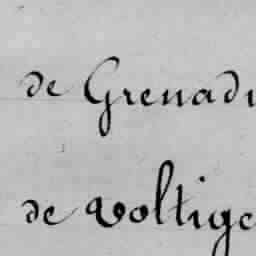 de Grenadi
de Voltige